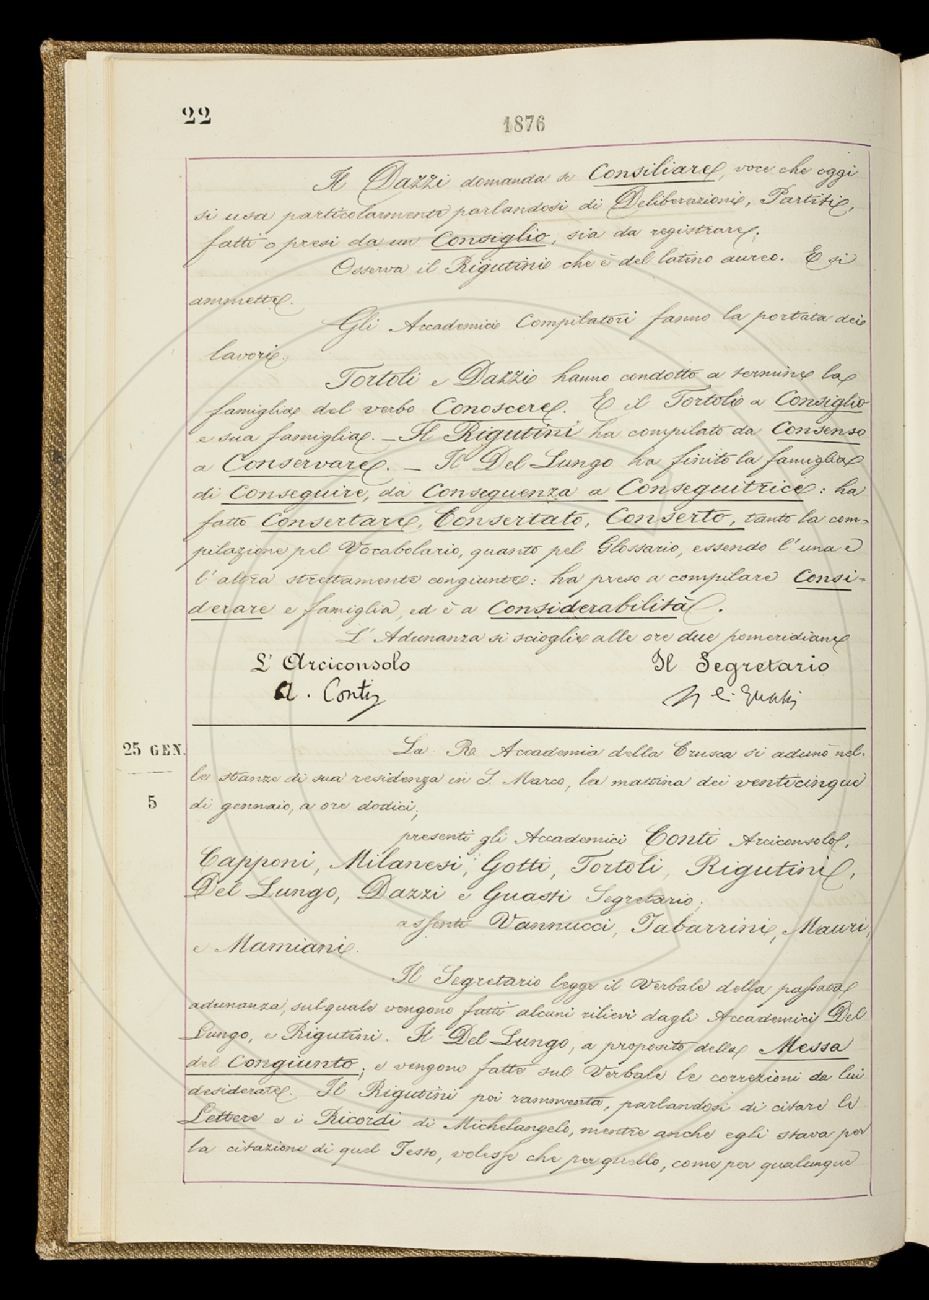 22
1876
Il Dazzi domanda se Consiliare, voce che oggi
si usa particolarmente parlandosi di Deliberazioni, Partiti,
fatti o presi da un Consiglio, sia da registrare.
Osserva il Rigutini che è del latino aureo. E si
ammette.
Gli Accademici Compilatori fanno la portata dei
lavori.
Tortoli e Dazzi hanno condotto a termine la
famiglia del verbo Conoscere. E il Tortoli a Consiglio
e sua famiglia. — Il Rigutini ha compilato da Consenso
a Conservare. — Il Del Lungo ha finito la famiglia
di Conseguire, da Conseguenza a Conseguitrice: ha
fatto Consertare, Consertato, Conserto, tanto la com-
pilazione pel Vocabolario, quanto pel Glossario, essendo l'una e
l'altra strettamente congiunte: ha preso a compilare Consi-
derare e famiglia, ed è a Considerabilità.
L'Adunanza si scioglie alle ore due pomeridiane
L'Arciconsolo Il Segretario
A. Conti
25 GEN. La R. Accademia della Crusca si adunò nel-
le stanze di sua residenza in S. Marco, la mattina dei venticinque
5 di gennaio, a ore dodici;
presenti gli Accademici Conti Arciconsolo,
Capponi, Milanesi, Gotti, Tortoli, Rigutini,
Del Lungo, Dazzi e Guasti Segretario;
assenti Vannucci, Tabarrini, Mauri,
e Mamiani.
Il Segretario legge il Verbale della passata
adunanza, sul quale vengono fatti alcuni rilievi dagli Accademici Del
Lungo, e Rigutini. Il Del Lungo, a proposito della Messa
del Congiunto; e vengono fatte sul Verbale le correzioni da lui
desiderate. Il Rigutini poi rammenta, parlandosi di citare le
Lettere e i Ricordi di Michelangelo, mentre anche egli stava per
la citazione di quel Testo, volesse che per quello, come per qualunque